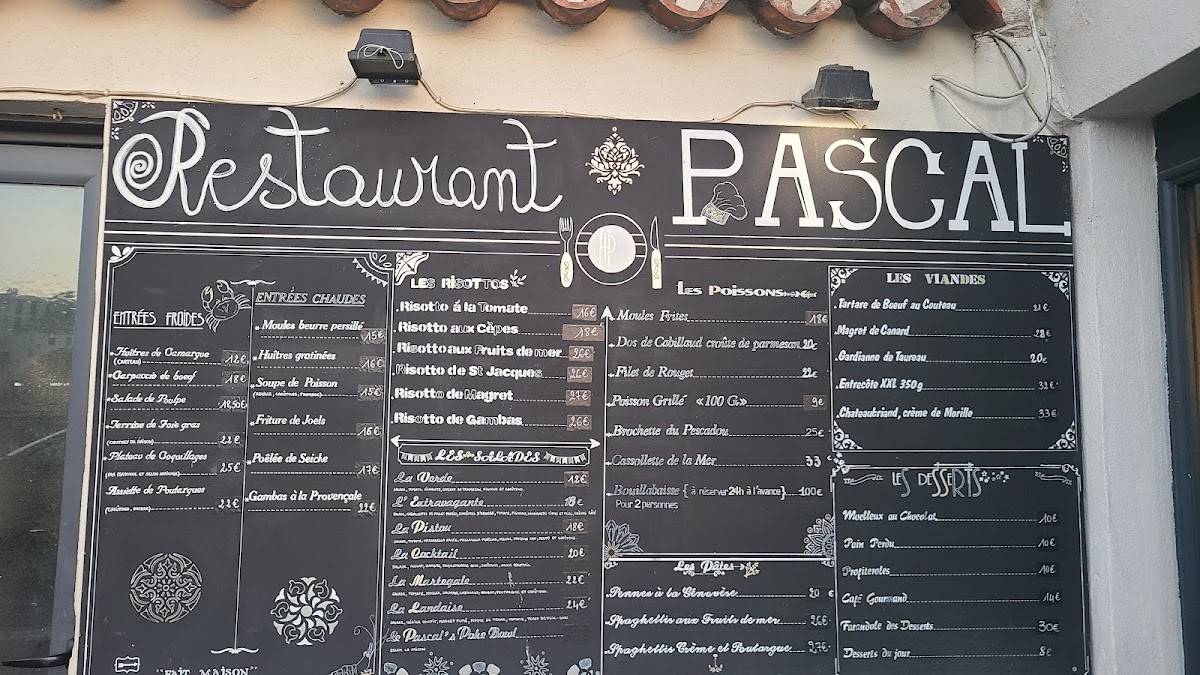 Restaurant PASCAL
ENTRÉES FROIDES
Huîtres de Camargue 12€
Carpaccio de boeuf 18€
Salade de Poulpe 18,50€
Terrine de Foie gras 22€
Plateau de Coquillages 25€
Assiette de Poutargues 22€
ENTRÉES CHAUDES
Moules beurre persillé 15€
Huîtres gratinées 16€
Soupe de Poisson 15€
Friture de Joels 15€
Poêlée de Seiche 17€
Gambas à la Provençale 22€
"FAIT MAISON"
LES RISOTTOS
Risotto á la Tomate 16€
Risotto aux Cèpes 18€
Risotto aux Fruits de mer 26€
Risotto de St Jacques 26€
Risotto de Magret 27€
Risotto de Gambas 26€
LES SALADES
La Verde 12€
L'Extravagante 18€
La Pistou 18€
La Cocktail 20€
La Martegale 22€
La Landaise 24€
Le Pascal's Poke Bowl
LES POISSONS
Moules Frites 18€
Dos de Cabillaud croûte de parmesan 20€
Filet de Rouget 22€
Poisson Grillé «100 G» 9€
Brochette du Pescadou 25€
Cassollette de la Mer 33€
Bouillabaisse { à réserver 24h à l'avance } 100€
Pour 2 personnes
Les Pâtes
Pennes à la Génovèse 20€
Spaghettis aux Fruits de mer 26€
Spaghettis Crème et Poutargue 27€
LES VIANDES
Tartare de Boeuf au Couteau 21€
Magret de Canard 28€
Gardianne de Taureau 20€
Entrecôte XXL 350g 32€
Chateaubriand, crème de Morille 33€
LES DESSERTS
Moelleux au Chocolat 10€
Pain Perdu 10€
Profiteroles 10€
Café Gourmand 14€
Farandole des Desserts 30€
Desserts du jour 8€